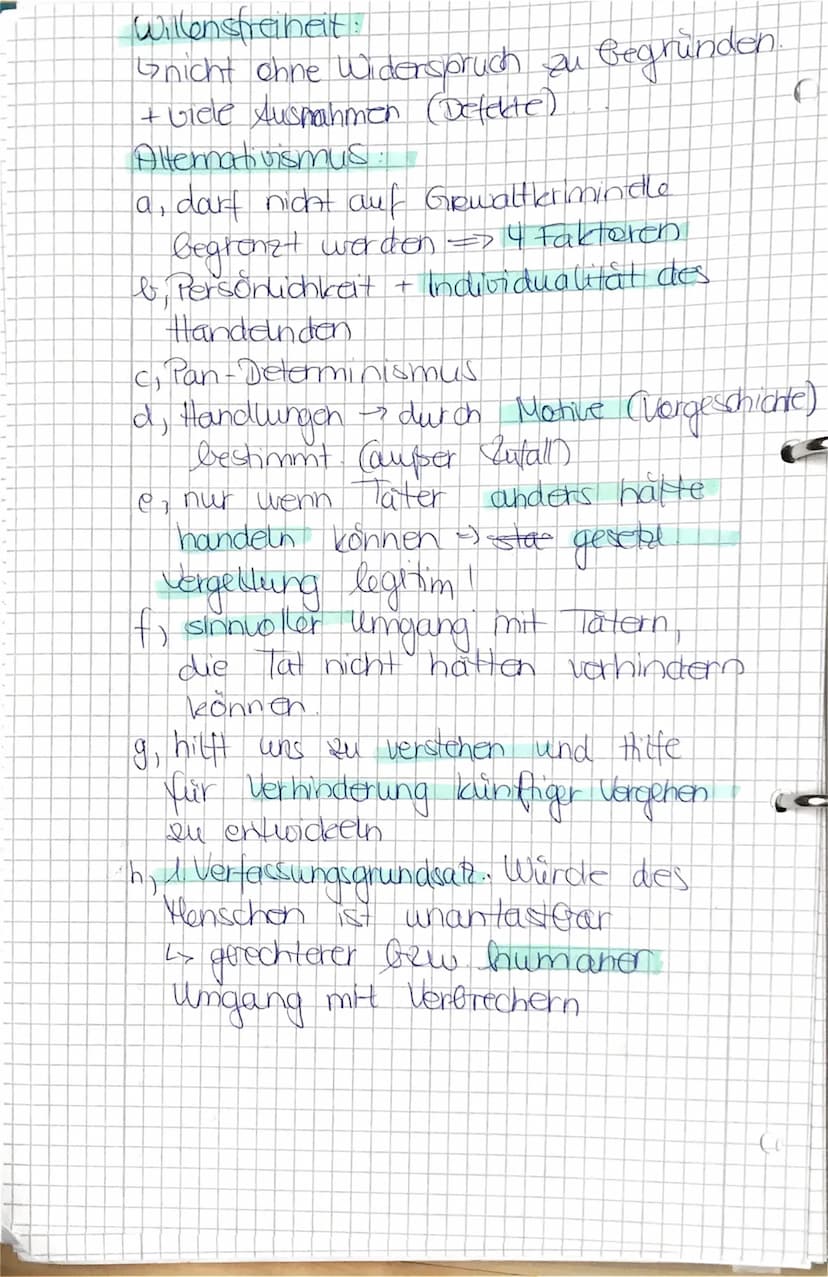 Willensfreiheit:
↳ nicht ohne Widerspruch zu begründen.
+ viele Ausnahmen (Defekte)
Alternativismus:
a, darf nicht auf Gewaltkriminelle
begrenzt werden => 4 Faktoren
b, Persönlichkeit + Individualität des
Handelnden
c, Pan-Determinismus
d, Handlungen → durch Motive (Vorgeschichte)
bestimmt. (außer Zufall)
e, nur wenn Täter anders hätte
handeln können => gesetzl.
Vergeltung legitim!
f, sinnvoller Umgang mit Tätern,
die Tat nicht hätten verhindern
können.
g, hilft uns zu verstehen und Hilfe
für Verhinderung künftiger Vergehen
zu entwickeln
h, 1. Verfassungsgrundsatz. Würde des
Menschen ist unantastbar
↳ gerechterer bzw. humaner
Umgang mit Verbrechern